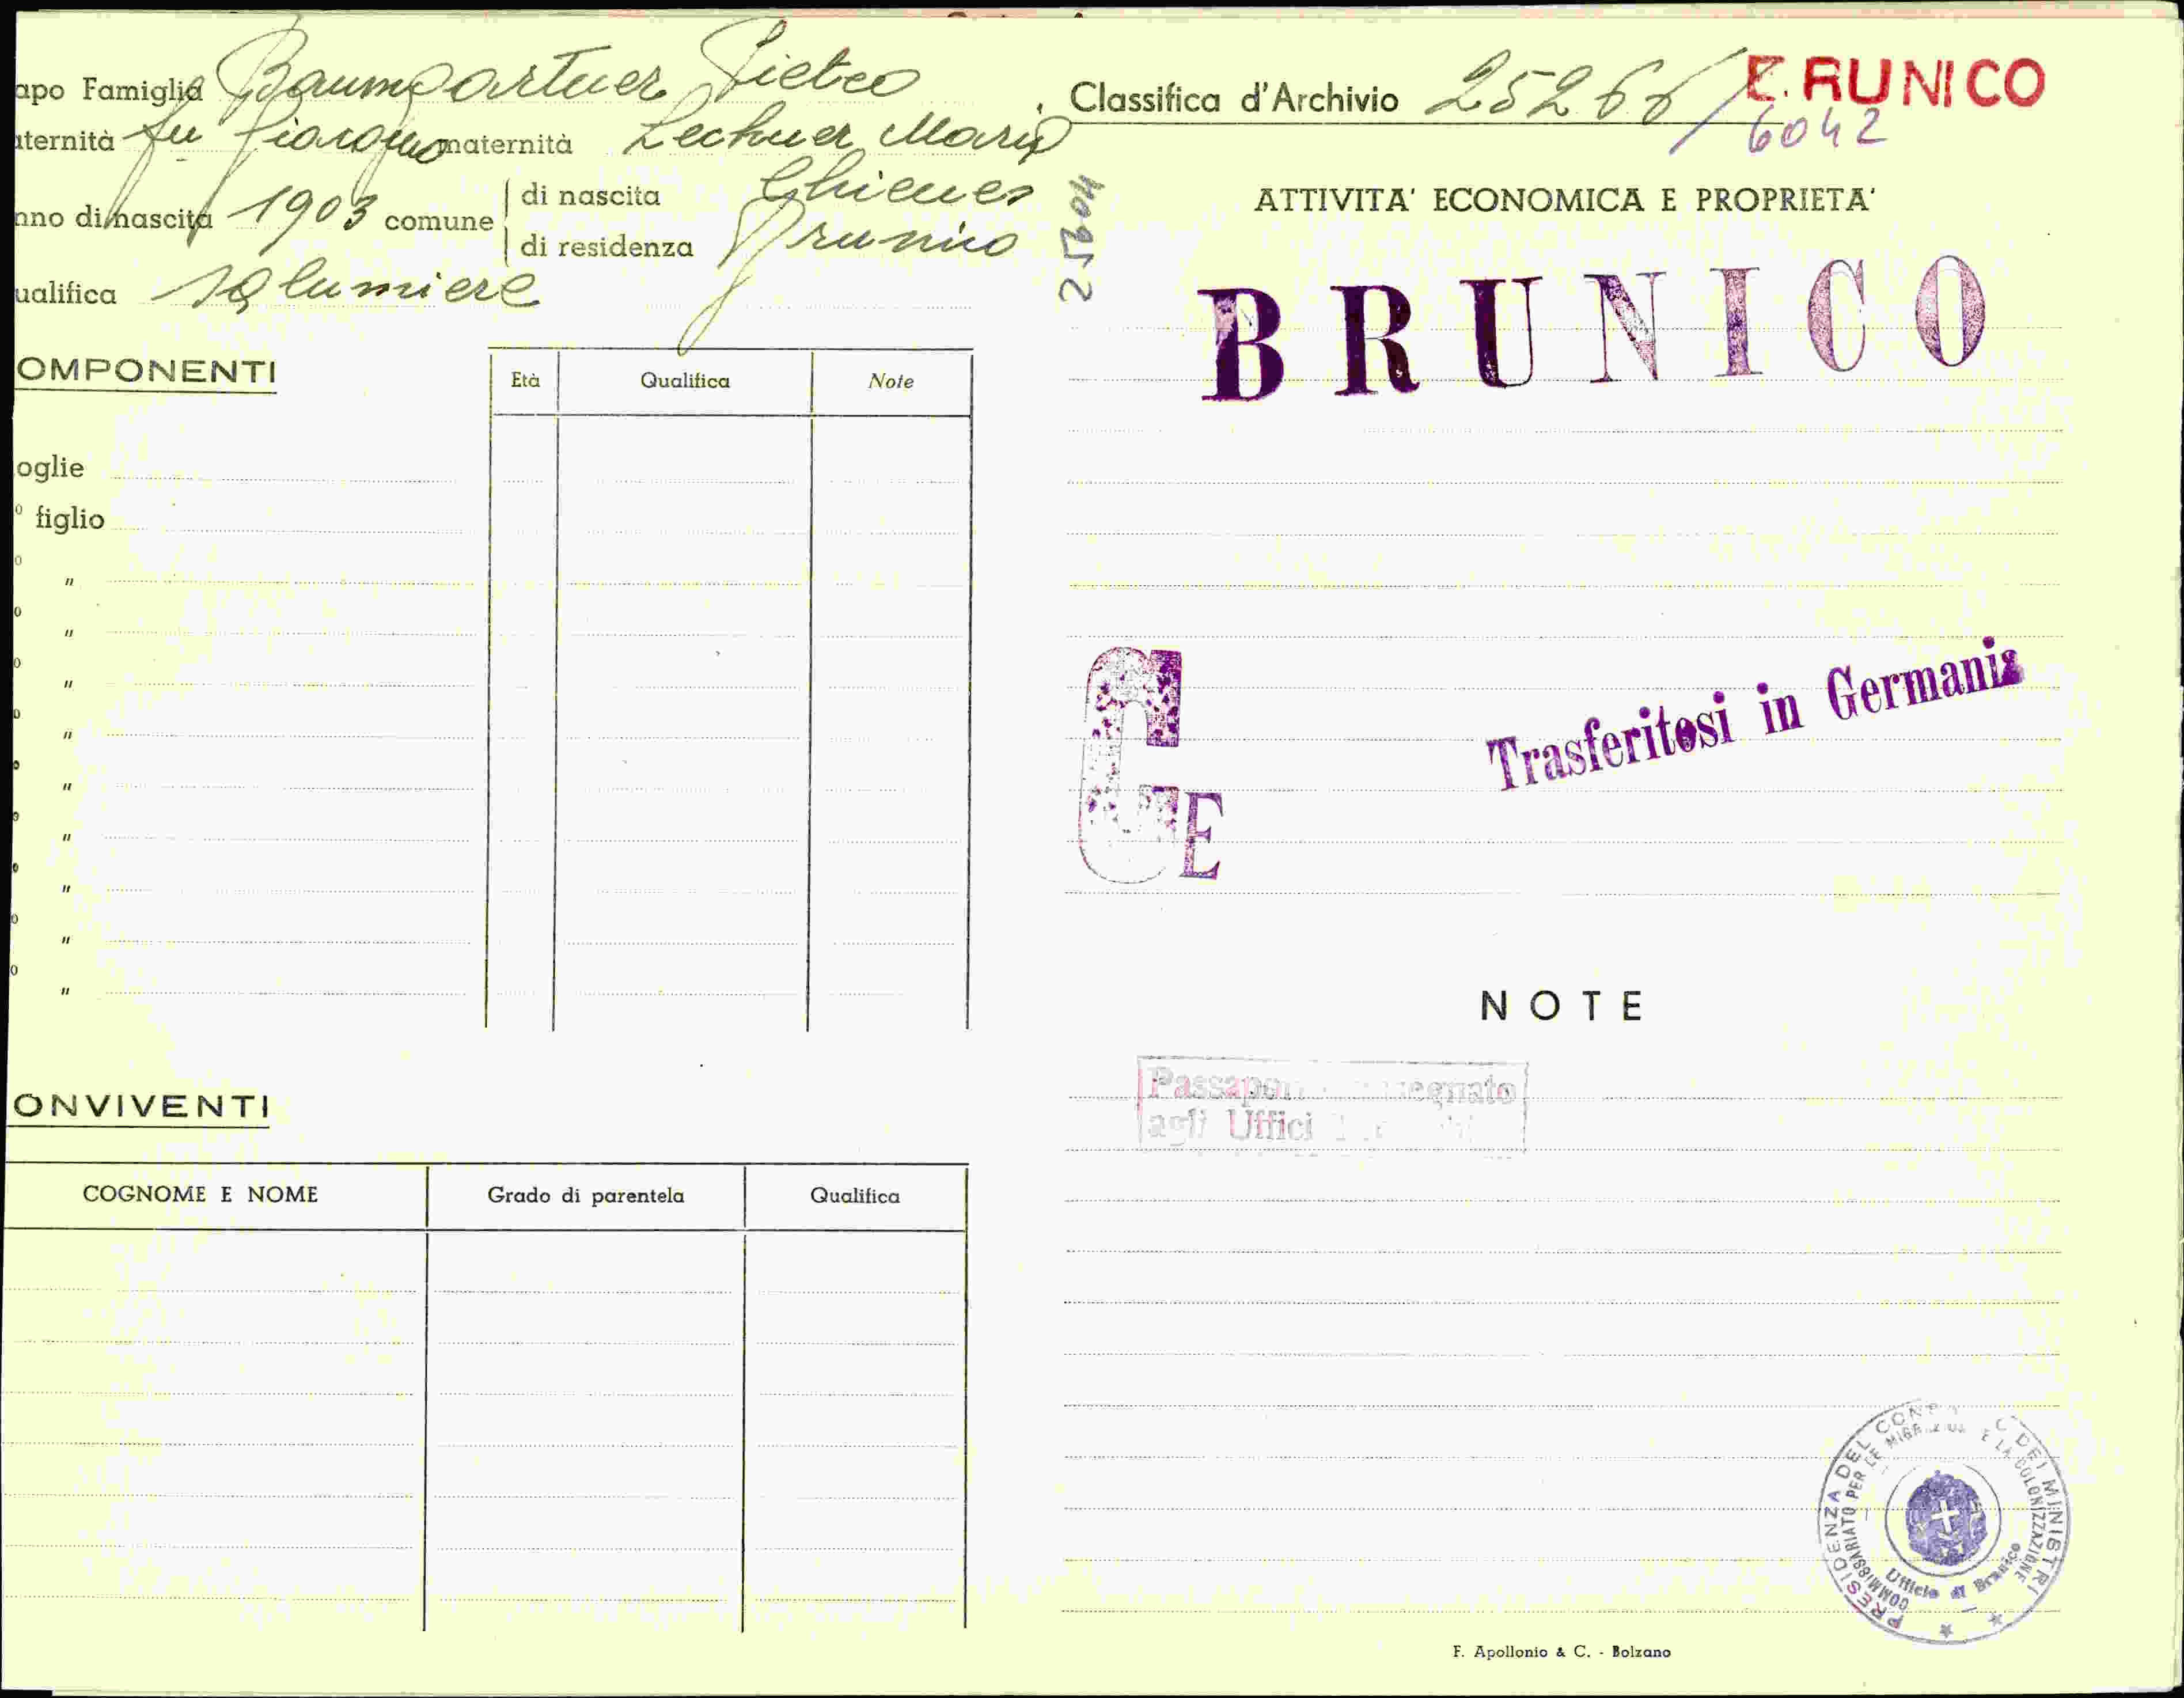 apo Famiglia Baumgartner Pietro
aternità fu Giorgio maternità Lechner Maria
nno di nascita 1903 comune di nascita Chienes
di residenza Brunico
ualifica salumiere
OMPONENTI
Età Qualifica Note
oglie
o figlio
o "
o "
o "
o "
o "
o "
o "
o "
o "
ONVIVENTI
COGNOME E NOME Grado di parentela Qualifica
Classifica d'Archivio 25266/ E. RUNICO
6042
25604
ATTIVITA' ECONOMICA E PROPRIETA'
BRUNICO
Trasferitosi in Germania
C E
NOTE
agli Uffici
PRESIDENZA DEL DEI MINISTRI
COMMISSARIATO PER LE E LA COLONIZZAZIONE
Ufficio di Brunico
F. Apollonio & C. - Bolzano